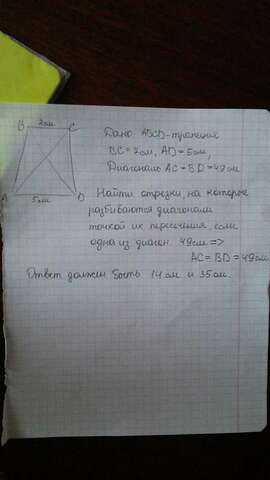 2см
B C
Дано ABCD-трапеция
BC=2см, AD=5см
Диагональ AC=BD=49см
A D
5см
Найти отрезки, на которое
разбиваются диагонали
точкой их пересечения, если
одна из диагон. 49см =>
AC=BD=49см
Ответ должен быть 14см и 35см.